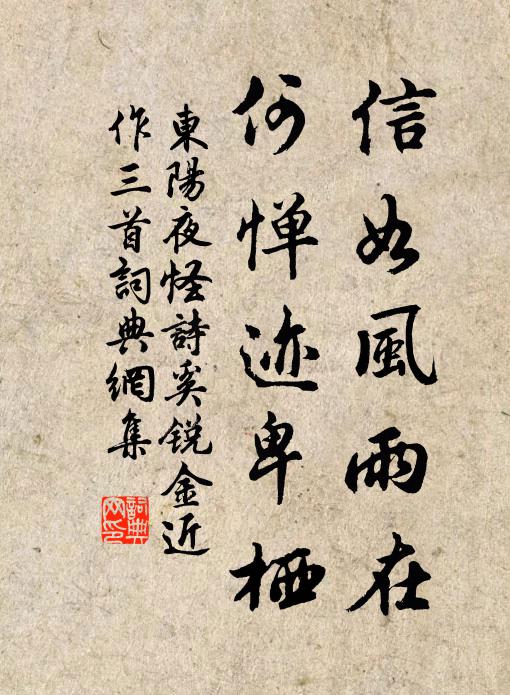 信如風雨在
何憚迹卑栖
東陽夜怪詩奚銳金近
作三首詞典網集
詞典
网印